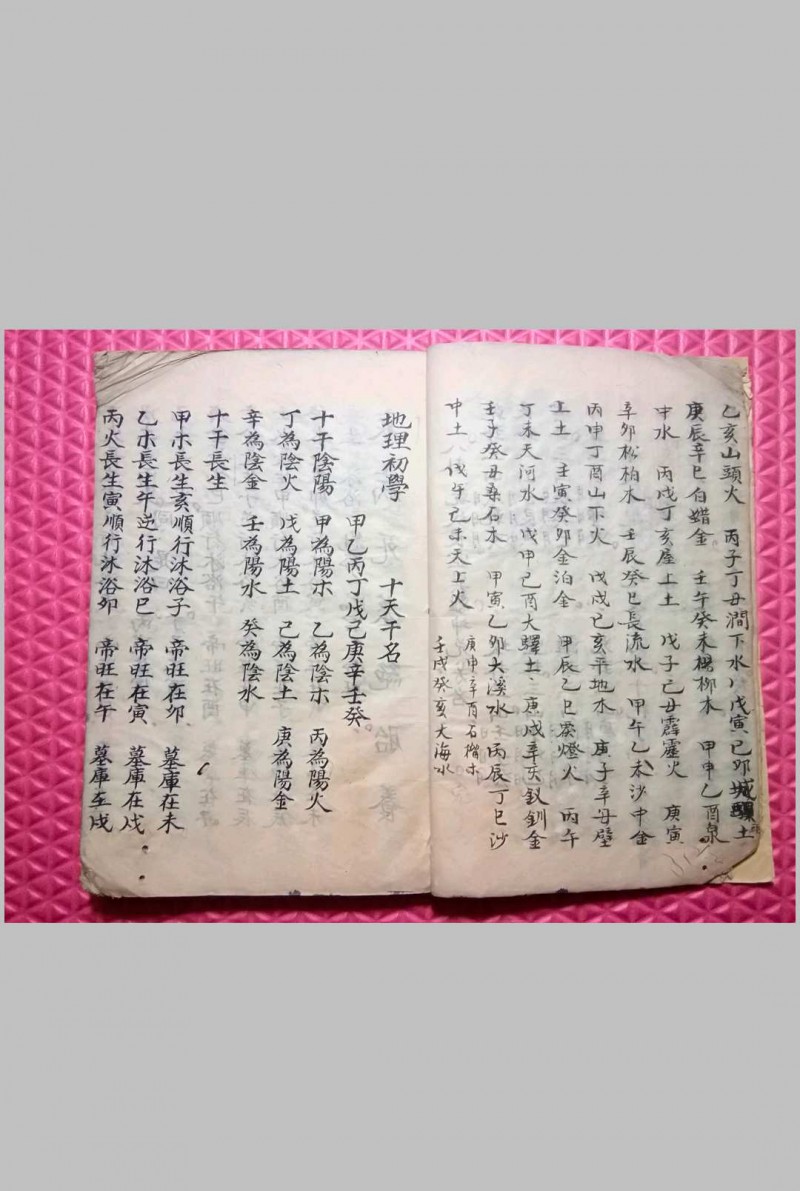 乙亥山頭火 丙子丁丑澗下水 戊寅己卯城頭土
庚辰辛巳白蜡金 壬午癸未楊柳木 甲申乙酉泉
中水 丙戌丁亥屋上土 戊子己丑霹靂火 庚寅
辛卯松柏木 壬辰癸巳長流水 甲午乙未沙中金
丙申丁酉山下火 戊戌己亥平地木 庚子辛丑壁
上土 壬寅癸卯金泊金 甲辰乙巳燈火 丙午
丁未天河水 戊申己酉大驛土 庚戌辛亥釵釧金
壬子癸丑桑石木 甲寅乙卯大溪水 丙辰丁巳沙
中土 戊午己未天上火
庚申辛酉石榴木
壬戌癸亥大海水
地理初學 十天干名
甲乙丙丁戊己庚辛壬癸
十干陰陽 甲為陽木 乙為陰木 丙為陽火
丁為陰火 戊為陽土 己為陰土 庚為陽金
辛為陰金 壬為陽水 癸為陰水
十干長生
甲木長生亥順行沐浴子 帝旺在卯 墓庫在未
乙木長生午逆行沐浴巳 帝旺在寅 墓庫在戌
丙火長生寅順行沐浴卯 帝旺在午 墓庫在戌